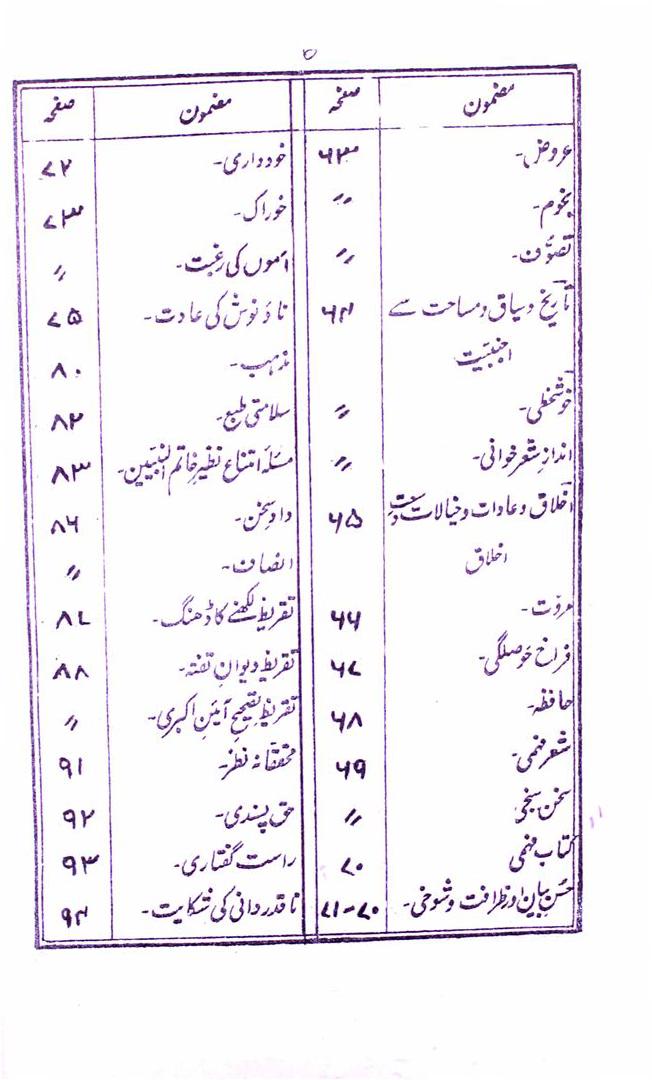 ۵
مضمون صفحہ
عروض۔ ۶۳
نجوم۔ 〃
تصوّف۔ 〃
تاریخ و سیاق و مساحت سے ۶۴
اجنبیت
خوشخطی۔ 〃
اندازِ شعر خوانی۔ 〃
اخلاق و عادات و خیالات ۶۵
اخلاق
مروّت۔ ۶۶
فراخ حوصلگی۔ ۶۷
حافظہ۔ ۶۸
شعر فہمی۔ ۶۹
سخن سنجی 〃
کتاب فہمی ۷۰
حُسنِ بیان اور ظرافت و شوخی۔ ۷۰-۷۱
مضمون صفحہ
خودداری۔ ۷۲
خوراک۔ ۷۳
آموں کی رغبت۔ 〃
ناؤ نوش کی عادت۔ ۷۵
مذہب۔ ۸۰
سلامتی طبع۔ ۸۲
مسئلہ امتناع نظیرِ خاتم النبیین۔ ۸۳
دادِ سخن۔ ۸۶
انصاف۔ 〃
تقریظ لکھنے کا ڈھنگ۔ ۸۷
تقریظ دیوانِ تفتہ۔ ۸۸
تقریظ تصحیح آئینِ اکبری۔ 〃
محققانہ نظر۔ ۹۱
حق پسندی۔ ۹۲
راست گفتاری۔ ۹۳
ناقدردانی کی شکایت۔ ۹۴